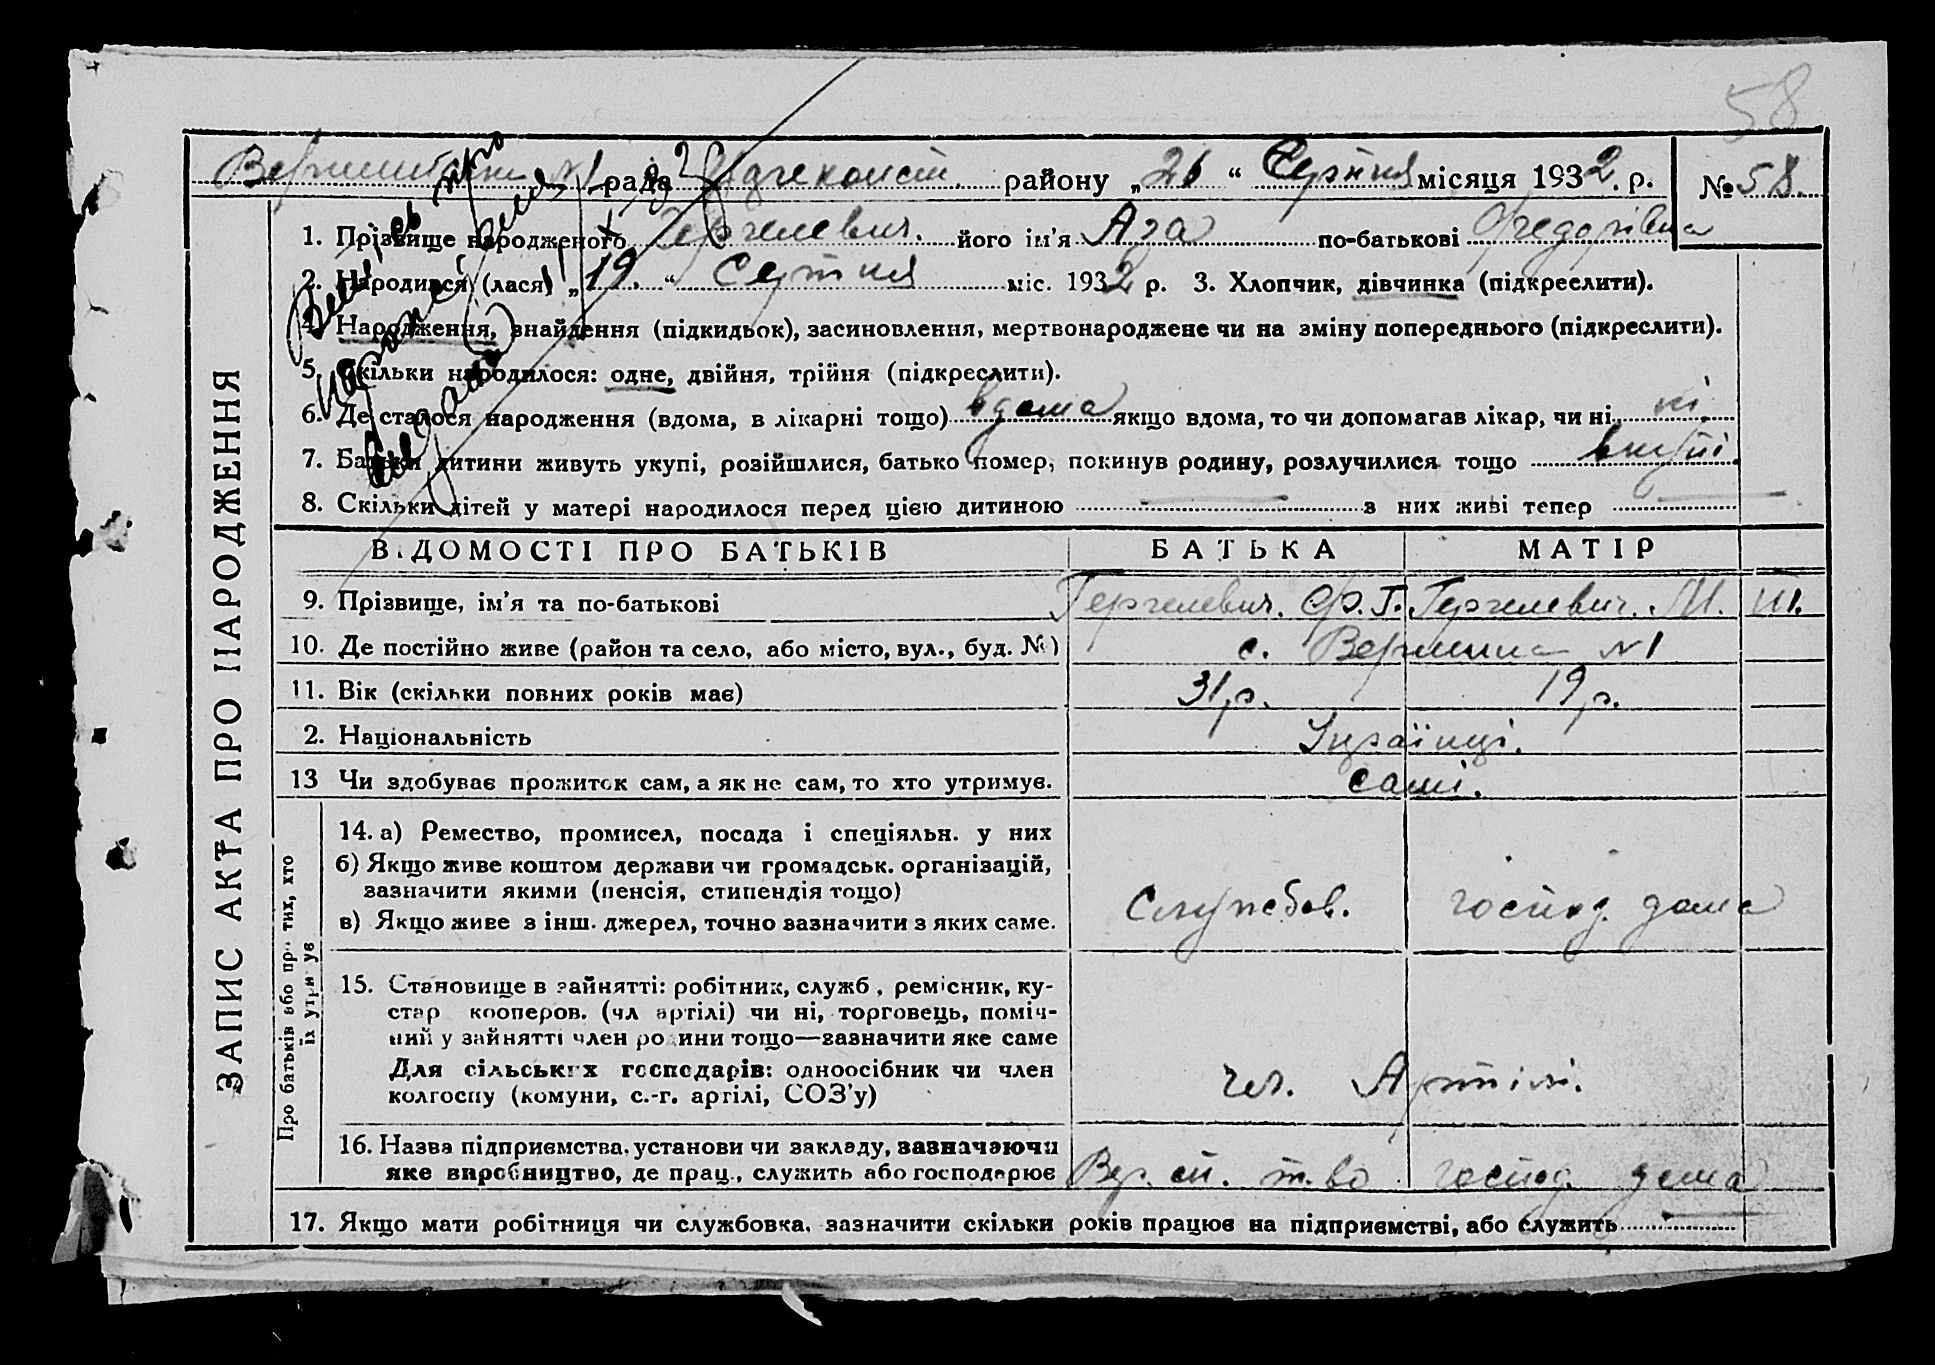 58
рада району „26“ Серпня місяця 1932. р. № 58.
1. Прізвище народженого Гергелевич. його ім'я Аза по-батькові Федорівна
2. Народився (лася) „19.“ Серпня міс. 1932 р. 3. Хлопчик, дівчинка (підкреслити).
4. Народження, знайдення (підкидьок), засиновлення, мертвонароджене чи на зміну попереднього (підкреслити).
5. Скільки народилося: одне, двійня, трійня (підкреслити).
6. Де сталося народження (вдома, в лікарні тощо) вдома якщо вдома, то чи допомагав лікар, чи ні ні
7. Батьки дитини живуть укупі, розійшлися, батько помер, покинув родину, розлучилися тощо вкупі.
8. Скільки дітей у матері народилося перед цією дитиною — з них живі тепер —
ЗАПИС АКТА ПРО НАРОДЖЕННЯ
ВІДОМОСТІ ПРО БАТЬКІВ БАТЬКА МАТІР
9. Прізвище, ім'я та по-батькові Гергелевич. Ф. Г. Гергелевич. М.
10. Де постійно живе (район та село, або місто, вул., буд. №) с. Вершина N1
11. Вік (скільки повних років має) 31 р. 19 р.
2. Національність Українці.
13 Чи здобуває прожиток сам, а як не сам, то хто утримує. самі.
Про батьків або про тих, хто
їх утримує
14. а) Ремество, промисел, посада і спеціяльн. у них
б) Якщо живе коштом держави чи громадськ. організацій,
зазначити якими (пенсія, стипендія тощо)
в) Якщо живе з інш. джерел, точно зазначити з яких саме.
Службов. господ. дома
15. Становище в зайнятті: робітник, служб., ремісник, ку-
стар кооперов. (чл артілі) чи ні, торговець, поміч-
ний у зайнятті член родини тощо—зазначити яке саме
Для сільських господарів: одноосібник чи член
колгоспу (комуни, с.-г. артілі, СОЗ'у)
чл. Артілі.
16. Назва підприємства, установи чи закладу, зазначаючи
яке виробництво, де прац., служить або господарює Вер. сп. т-во господ. дома
17. Якщо мати робітниця чи службовка, зазначити скільки років працює на підприємстві, або служить —